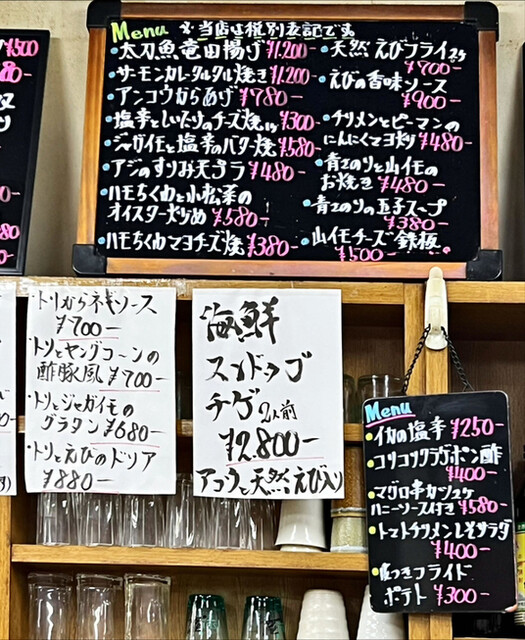 Menu ※当店は税別表記です
・太刀魚竜田揚げ ¥1,200-
・サーモンカレータルタル焼き ¥1,200-
・アンコウからあげ ¥780-
・塩辛としいたけのチーズ焼 ¥300-
・ジャガイモと塩辛のバター焼 ¥580-
・アジのすりみ天プラ ¥480-
・ハモちくわと小松菜の
オイスター炒め ¥580-
・ハモちくわマヨチーズ焼 ¥380-
・天然えびフライ
¥700-
・えびの香味ソース
¥900-
・チリメンとピーマンの
にんにくマヨ炒め ¥480-
・青のりと山イモの
お焼き ¥480-
・青のりの玉子スープ
¥380-
・山イモチーズ鉄板
¥500-
・トリからネギソース
¥700-
・トリとヤングコーンの
酢豚風 ¥700-
・トリとジャガイモの
グラタン ¥680-
・トリとえびのドリア
¥880-
海鮮
スンドゥブ
チゲ 2人前
¥2,800-
アコウと天然えび入り
Menu
・イカの塩辛 ¥250-
・コリコリクラゲポン酢
¥400-
・マグロ串カツ
ハニーソース付き ¥580-
・トマトチリメンしそサラダ
¥400-
・皮つきフライド
ポテト ¥300-